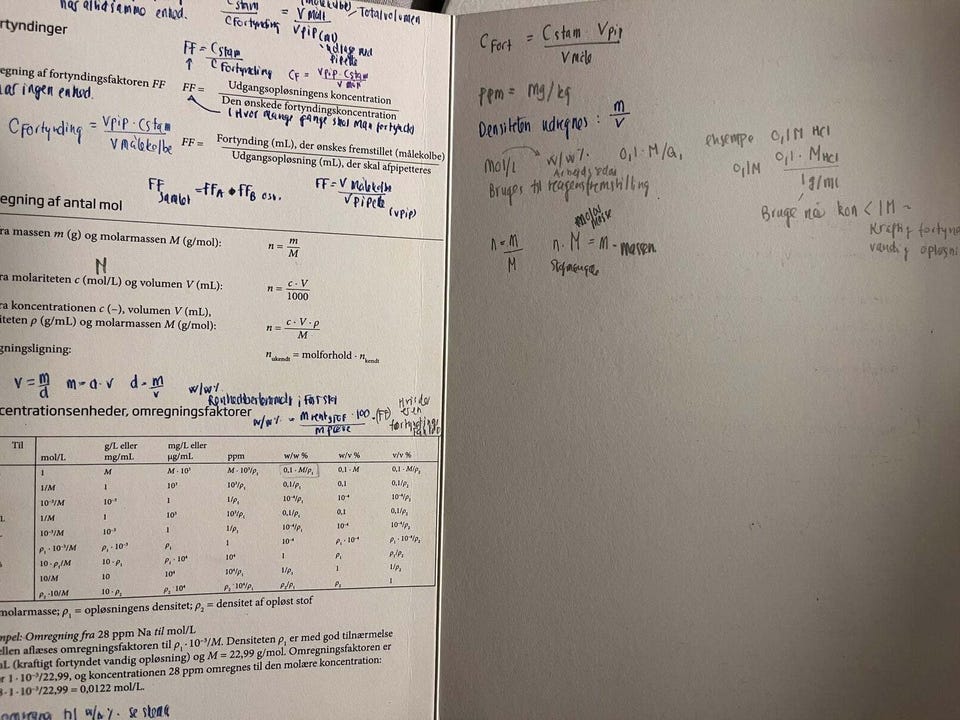 C Fortynding = V måle / V pip (ml)
(målekolbe) / Totalvolumen
rtyndinger
FF = C stam / C Fortynding
CF = V pip · C stam
egning af fortyndingsfaktoren FF
har ingen enhed.
FF = Udgangsopløsningens koncentration / Den ønskede fortyndingskoncentration
(Hvor mange gange skal man fortynde)
C Fortynding = V pip · C stam / V målekolbe
FF = Fortynding (mL), der ønskes fremstillet (målekolbe) / Udgangsopløsning (mL), der skal afpipetteres
FF samlet = FF A • FF B osv.
FF = V målekolbe / V pipette (Vpip)
egning af antal mol
ra massen m (g) og molarmassen M (g/mol): n = m / M
M
ra molariteten c (mol/L) og volumen V (mL): n = c · V / 1000
ra koncentrationen c (–), volumen V (mL),
iteten ρ (g/mL) og molarmassen M (g/mol): n = c · V · ρ / M
gningsligning: n ukendt = molforhold · n kendt
V = m/d m = d · v d = m/v
w/w%
centrationsenheder, omregningsfaktorer
w/w% = m rent stof · 100 / m prøve · (FF)
Til mol/L g/L eller mg/mL mg/L eller µg/mL ppm w/w % w/v % v/v %
1 M M · 10³ M · 10³/ρ₁ 0,1 · M/ρ₁ 0,1 · M 0,1 · M/ρ₂
1/M 1 10³ 10³/ρ₁ 0,1/ρ₁ 0,1 0,1/ρ₂
10⁻³/M 10⁻³ 1 1/ρ₁ 10⁻⁴/ρ₁ 10⁻⁴ 10⁻⁴/ρ₂
L 1/M 1 10³ 10³/ρ₁ 0,1/ρ₁ 0,1 0,1/ρ₂
10⁻³/M 10⁻³ 1 1/ρ₁ 10⁻⁴/ρ₁ 10⁻⁴ 10⁻⁴/ρ₂
ρ₁ · 10⁻³/M ρ₁ · 10⁻³ ρ₁ 1 10⁻⁴ ρ₁ · 10⁻⁴ ρ₁ · 10⁻⁴/ρ₂
10 · ρ₁/M 10 · ρ₁ ρ₁ · 10⁴ 10⁴ 1 ρ₁ ρ₁/ρ₂
10/M 10 10⁴ 10⁴/ρ₁ 1/ρ₁ 1 1/ρ₂
ρ₂ · 10/M 10 · ρ₂ ρ₂ · 10⁴ ρ₂ · 10⁴/ρ₁ ρ₂/ρ₁ ρ₂ 1
molarmasse; ρ₁ = opløsningens densitet; ρ₂ = densitet af opløst stof
mpel: Omregning fra 28 ppm Na til mol/L
ellen aflæses omregningsfaktoren til ρ₁ · 10⁻³/M. Densiteten ρ₁ er med god tilnærmelse
mL (kraftigt fortyndet vandig opløsning) og M = 22,99 g/mol. Omregningsfaktoren er
r 1 · 10⁻³/22,99, og koncentrationen 28 ppm omregnes til den molære koncentration:
8 · 1 · 10⁻³/22,99 = 0,0122 mol/L.
til w/w%. se
C Fort = C stam · V pip / V måle
ppm = mg/kg
Densiteten udregnes : m/v
mol/L w/w% 0,1 · M/
0,1M HCl
0,1M 0,1 · M HCl / 1g/ml
Bruges til reagensfremstilling
Bruges når kon < 1M
kraftig fortynd
vandig opløsni
molar masse
n = m/M n · M = m - massen
stofmængde